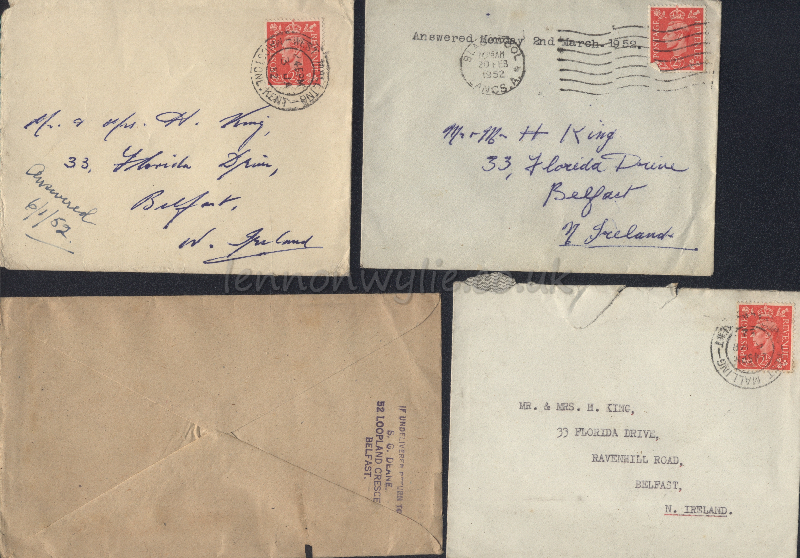 Mr. & Mrs. H. King,
33, Florida Drive,
Belfast,
N. Ireland
Answered
6/1/52.
Answered Monday 2nd March. 1952.
BLACKPOOL
20 FEB
1952
LANCS. A.
POSTAGE REVENUE
Mr & Mrs H King
33, Florida Drive
Belfast
N Ireland
lennonwylie.co.uk
IF UNDELIVERED TO
S. G. DEANE
52 LOOPLAND
BELFAST.
POSTAGE REVENUE
MALLING
MR. & MRS. H. KING,
33 FLORIDA DRIVE,
RAVENHILL ROAD,
BELFAST,
N. IRELAND.